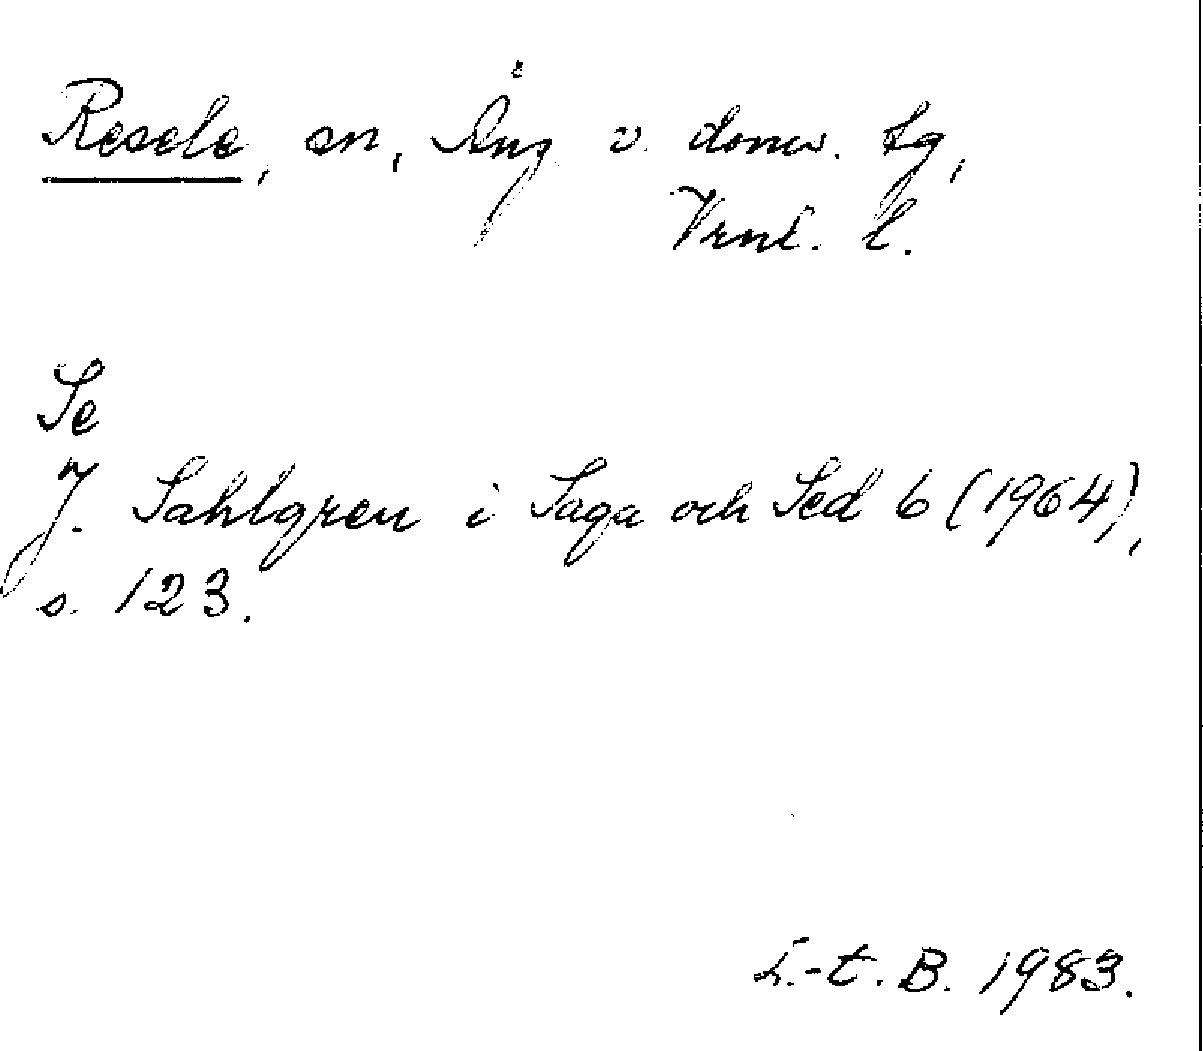 Resele, sn, Ång v. doms. tg,
Vrnl. l.
Se
J. Sahlgren i Saga och Sed 6 (1964),
s. 123.
L.-t. B. 1983.